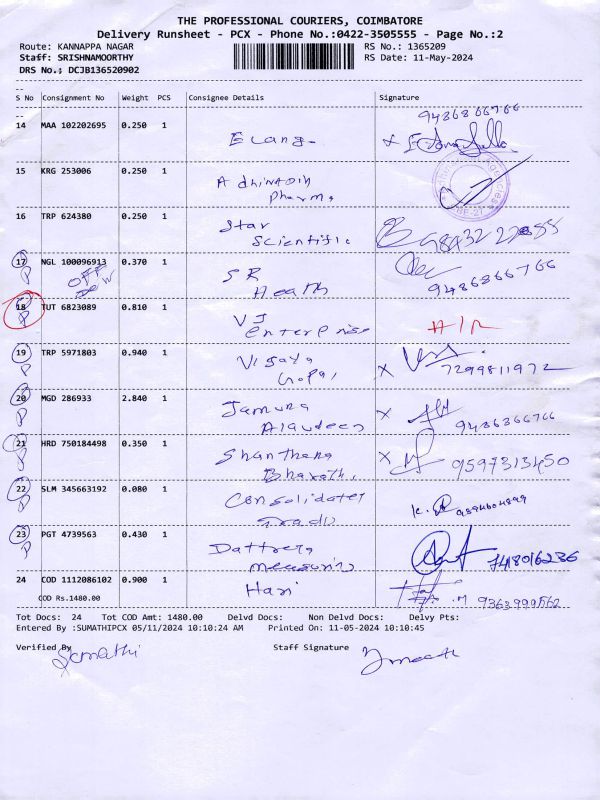 THE PROFESSIONAL COURIERS, COIMBATORE
Delivery Runsheet - PCX - Phone No.:0422-3505555 - Page No.:2
Route: KANNAPPA NAGAR RS No.: 1365209
Staff: SRISHNAMOORTHY RS Date: 11-May-2024
DRS No.; DCJB136520902
--
S No Consignment No Weight PCS Consignee Details Signature
--
9486866766
14 MAA 102202695 0.250 1
Elang.
15 KRG 253006 0.250 1
Adhinath
Pharma
16 TRP 624380 0.250 1 Star
Scientific 98432 22888
17 NGL 100096913 0.370 1
P OFF SR
Health 9486866766
18 TUT 6823089 0.810 1 VJ
P enterprise A/R
19 TRP 5971803 0.940 1 Vijaya
P Gopal X 7299811972
20 MGD 286933 2.840 1 Jamuna
P Alaudeen X 9486866766
21 HRD 750184498 0.350 1 Shanthana
P Bharathi X 9597313450
22 SLM 345663192 0.080 1 Consolidates
P 9894604899
23 PGT 4739563 0.430 1 Dattreya
P measuring 7418016236
24 COD 1112086102 0.900 1 Hari
COD Rs.1480.00 9363999562
Tot Docs: 24 Tot COD Amt: 1480.00 Delvd Docs: Non Delvd Docs: Delvy Pts:
Entered By :SUMATHIPCX 05/11/2024 10:10:24 AM Printed On: 11-05-2024 10:10:45
Verified By Staff Signature
Sumathi